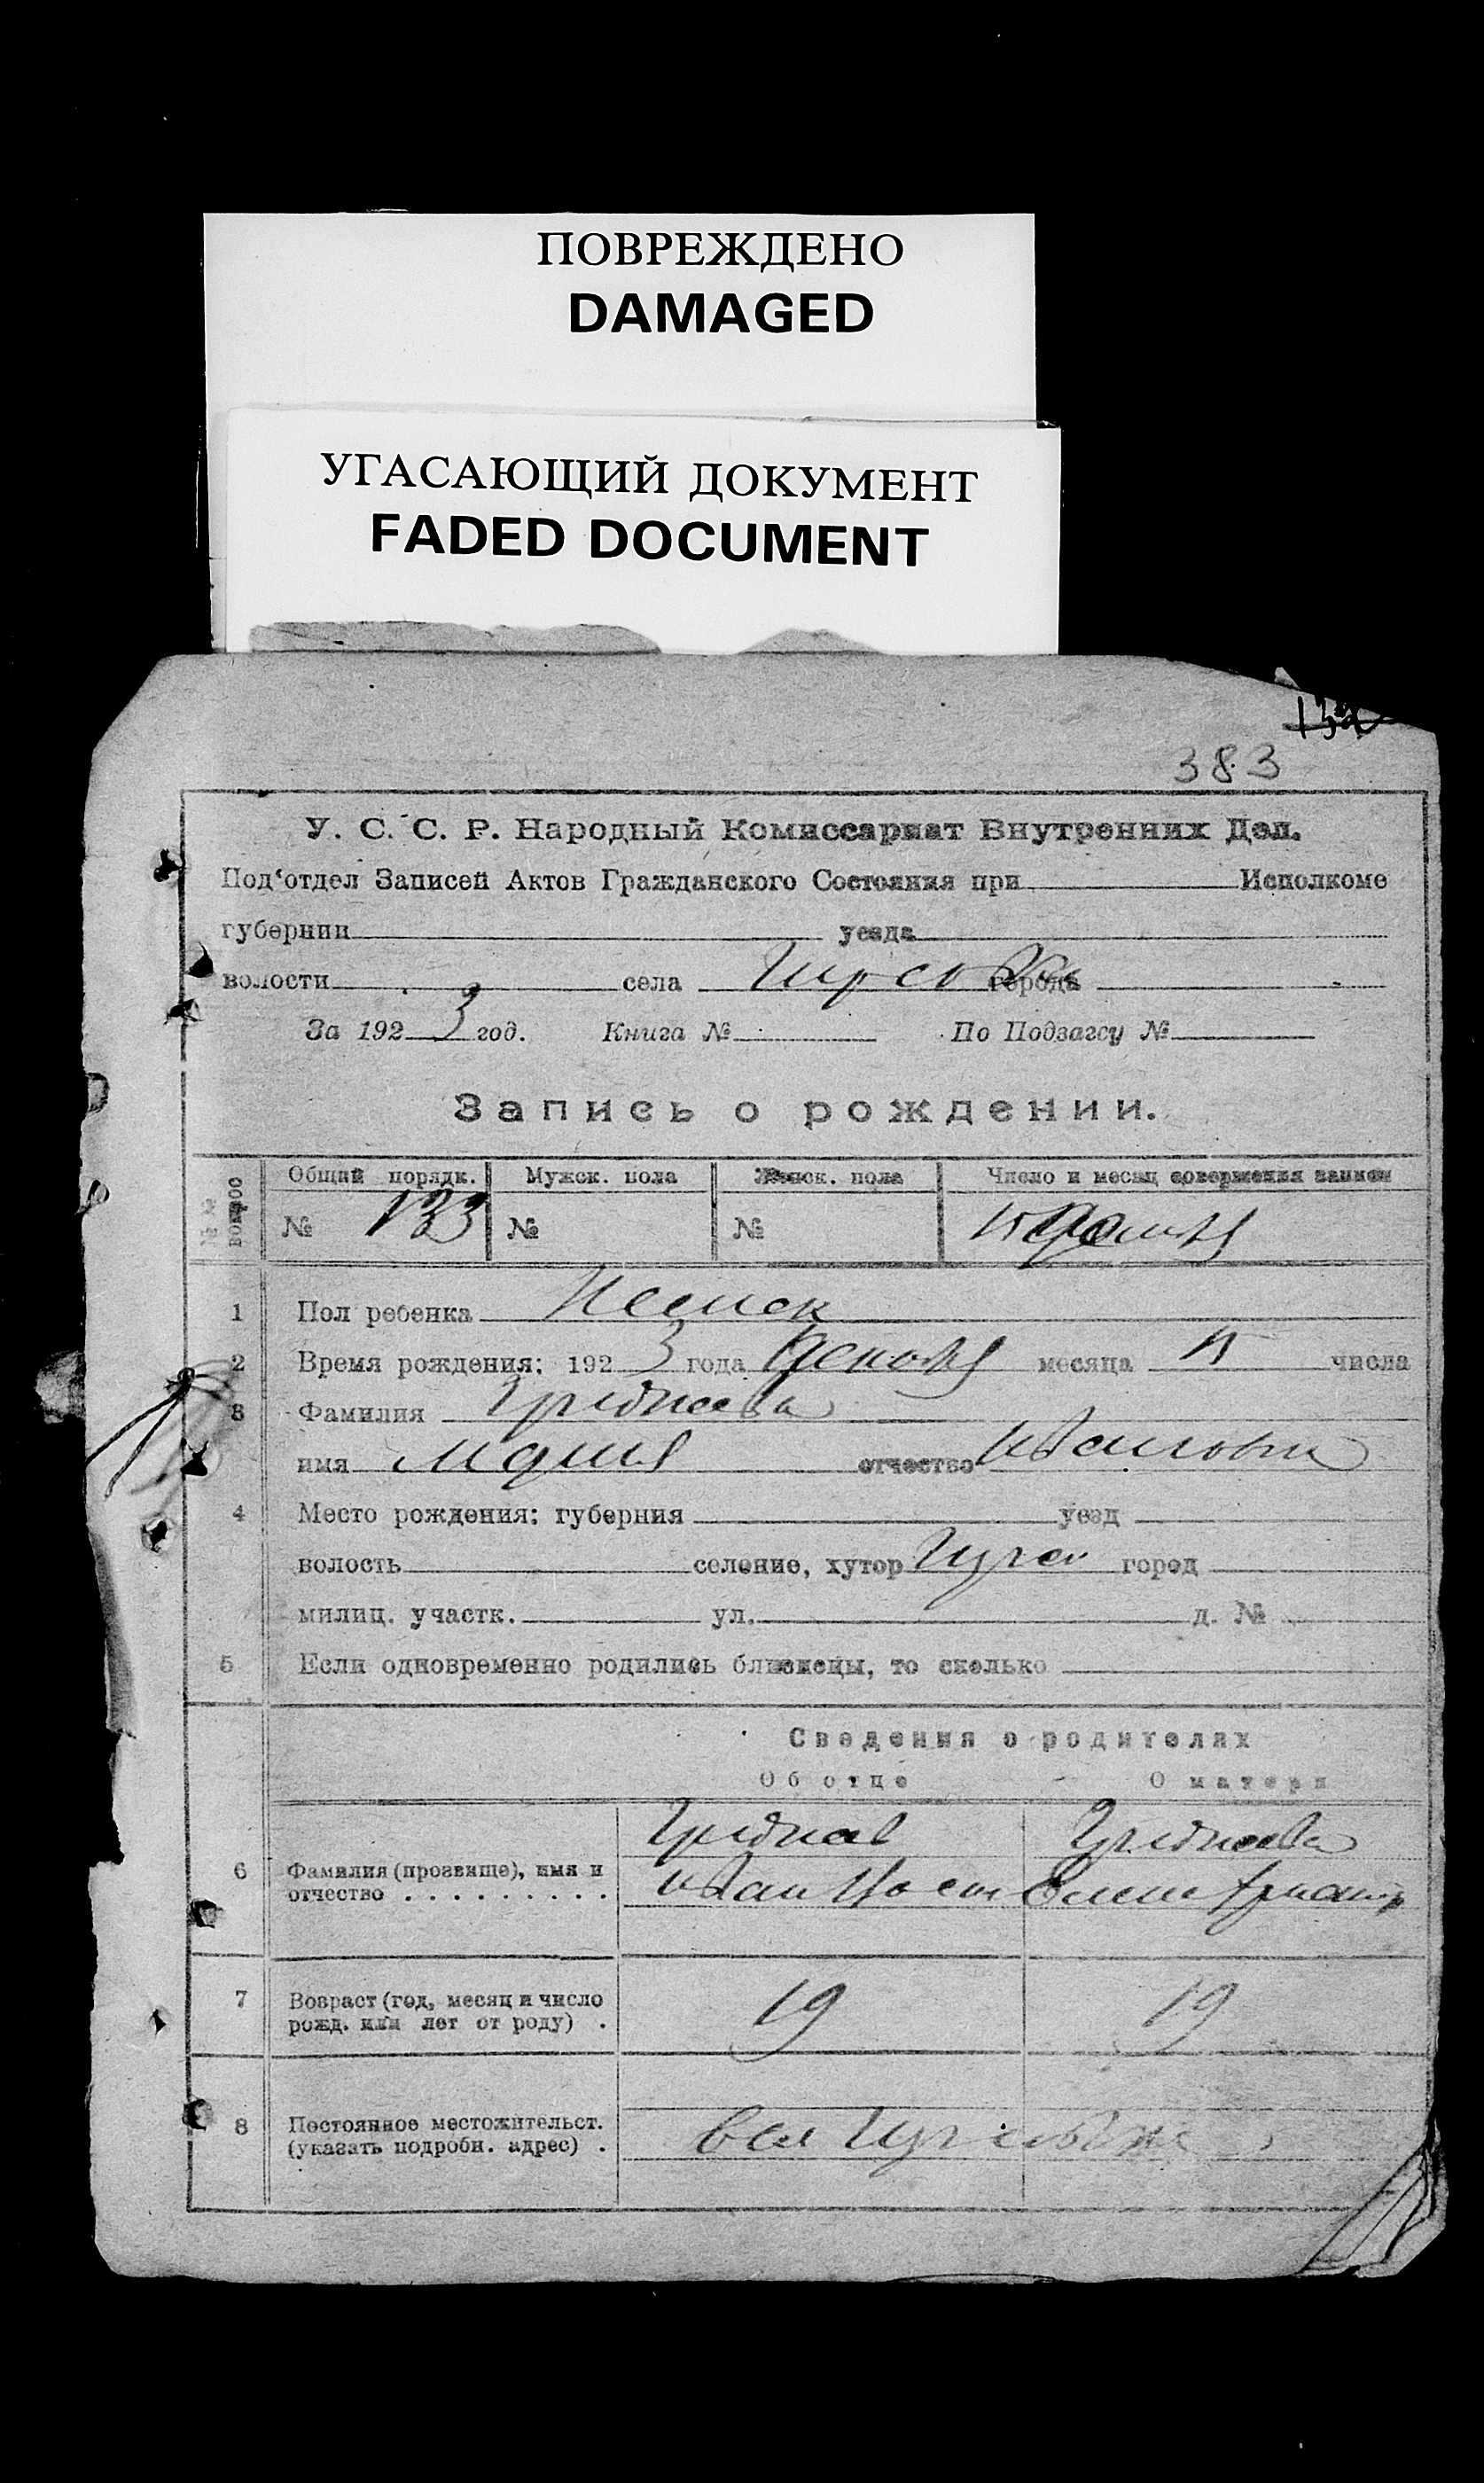 ПОВРЕЖДЕНО
DAMAGED
УГАСАЮЩИЙ ДОКУМЕНТ
FADED DOCUMENT
132
383
У. С. С. Р. Народный Комиссариат Внутренних Дел.
Под‘отдел Записей Актов Гражданского Состояния при Исполкоме
губернии уезда
волости села города
За 1923 год. Книга № По Подзагсу №
Запись о рождении.
№№ вопрос
Общий порядк. Мужск. пола Женск. пола Число и месяц совершения записи
№ 133 № №
1 Пол ребенка
2 Время рождения: 1923 года месяца числа
3 Фамилия Греднева
имя отчество Ивановна
4 Место рождения: губерния уезд
волость селение, хутор город
милиц. участк. ул. д. №
5 Если одновременно родились близнецы, то сколько
Сведения о родителях
Об отце О матери
Греднев Греднева
6 Фамилия (прозвище), имя и отчество Иван Елена
7 Возраст (год, месяц и число рожд. или лет от роду) 19 19
8 Постоянное местожительст. (указать подробн. адрес)